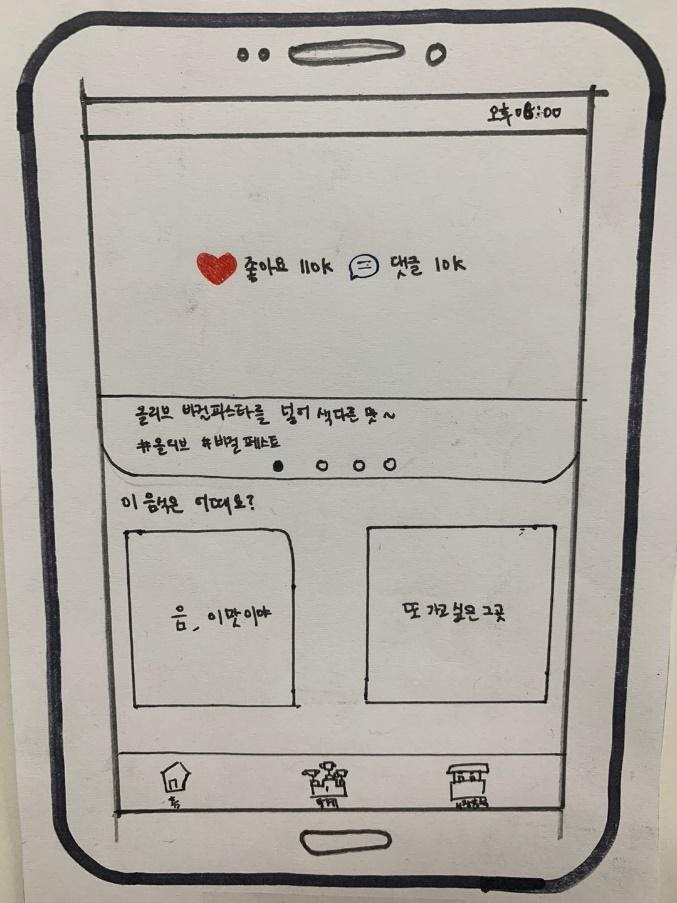 오후 08:00
좋아요 110K 댓글 10K
올리브 바컨파스타를 넣어 색다른 맛~
#올리브 #바컬페스토
이 음식은 어때요?
음, 이맛이야
또 가고싶은 그곳
홈